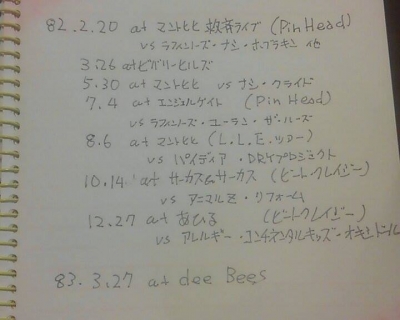 82.2.20 at マントヒヒ救済ライブ (Pin Head)
vs ラフィンノーズ・ナシ・ホブラキン 他
3.26 at ビバリーヒルズ
5.30 at マントヒヒ vs ナシ・クライド
7.4 at エンジェルゲイト (Pin Head)
vs ラフィンノーズ・ユーラン・ザ・ルーズ
8.6 at マントヒヒ (L.L.E.ツアー)
vs パイディア・DRYプロジェクト
10.14 at サーカス&サーカス (ビートクレイジー)
vs アニマルZ・リフォーム
12.27 at あひる (ビートクレイジー)
vs アレルギー・コンチネンタルキッズ・オキシドール
83.3.27 at dee Bees